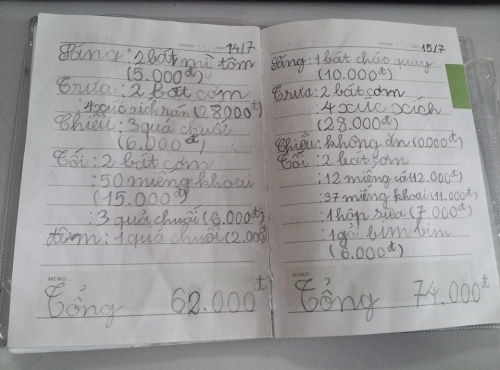 14/7
Sáng: 2 bát mì tôm
(5.000đ)
Trưa: 2 bát cơm
: 4 xúc xích rán (28000đ)
Chiều: 3 quả chuối
(6.000đ)
Tối: 2 bát cơm
: 50 miếng khoai
(15.000đ)
: 3 quả chuối (6.000đ)
đêm: 1 quả chuối (2.000đ)
MEMO
Tổng 62.000đ
15/7
Sáng: 1 bát cháo quay
(10.000đ)
Trưa: 2 bát cơm
: 4 xúc xích
(28.000đ)
Chiều: không ăn (0.000đ)
Tối: 2 bát cơm
: 12 miếng cá (12.000đ)
: 37 miếng khoai (11.000đ)
: 1 hộp sữa (7.000đ)
: 1 gói bim bim
(6.000đ)
MEMO
Tổng 74.000đ